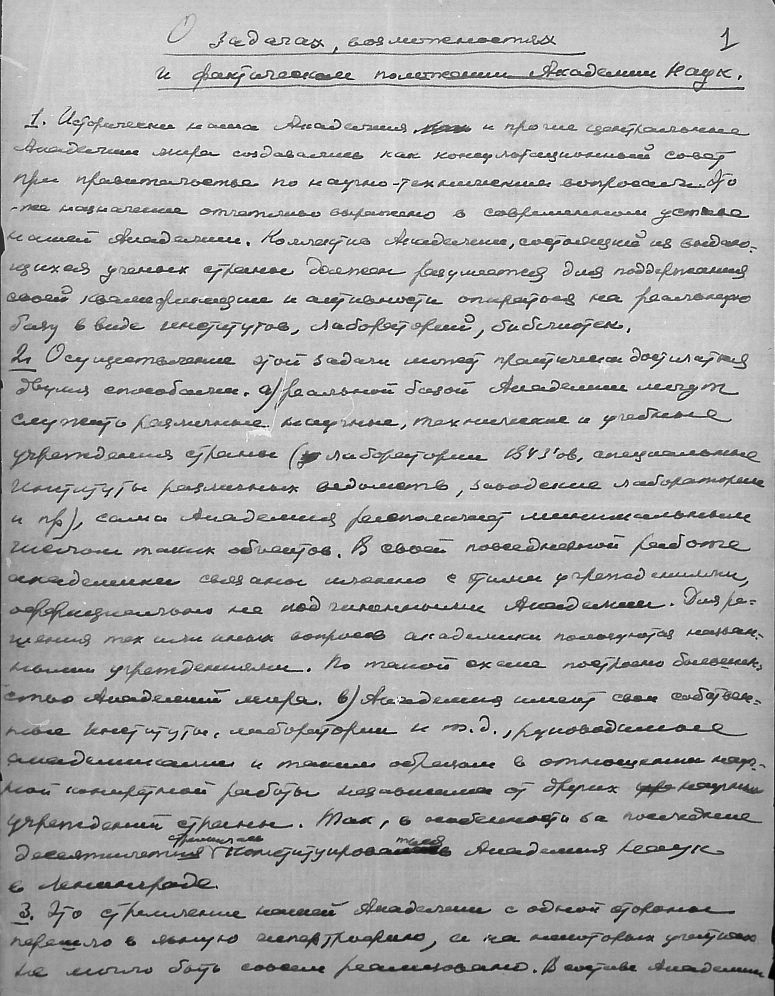 О задачах, возможностях 1
и фактическом положении Академии Наук.
1. Исторически наша Академия и прочие центральные
Академии мира создавались как консультационный совет
при правительстве по научно-техническим вопросам. Это
же назначение отчетливо выражено в современном уставе
нашей Академии. Коллектив Академии, состоящий из выдаю-
щихся ученых страны должен разумеется для поддержания
своей квалификации и активности опираться на реальную
базу в виде институтов, лабораторий, библиотек.
2. Осуществление этой задачи может практически достигаться
двумя способами. а) реальной базой Академии могут
служить различные научные, технические и учебные
учреждения страны (лаборатории ВУЗ'ов, специальные
институты различных ведомств, заводские лаборатории
и пр), сама Академия располагает минимальным
числом таких объектов. В своей повседневной работе
академики связаны именно с этими учреждениями,
официально не подчиненными Академии. Для ре-
шения тех или иных вопросов академики пользуются назван-
ными учреждениями. По такой схеме построено большин-
ство Академий мира. в) Академия имеет свои собствен-
ные институты, лаборатории и т.д., руководимые
академиками и таким образом в отношении науч-
ной конкретной работы независима от других научных
учреждений страны. Так, в особенности за последние
десятилетия стремилась конституироваться Академия Наук
в Ленинграде.
3. Это стремление нашей Академии с одной стороны
перешло в явную гипертрофию, а на некоторых участках
не могло быть совсем реализовано. В составе Академии